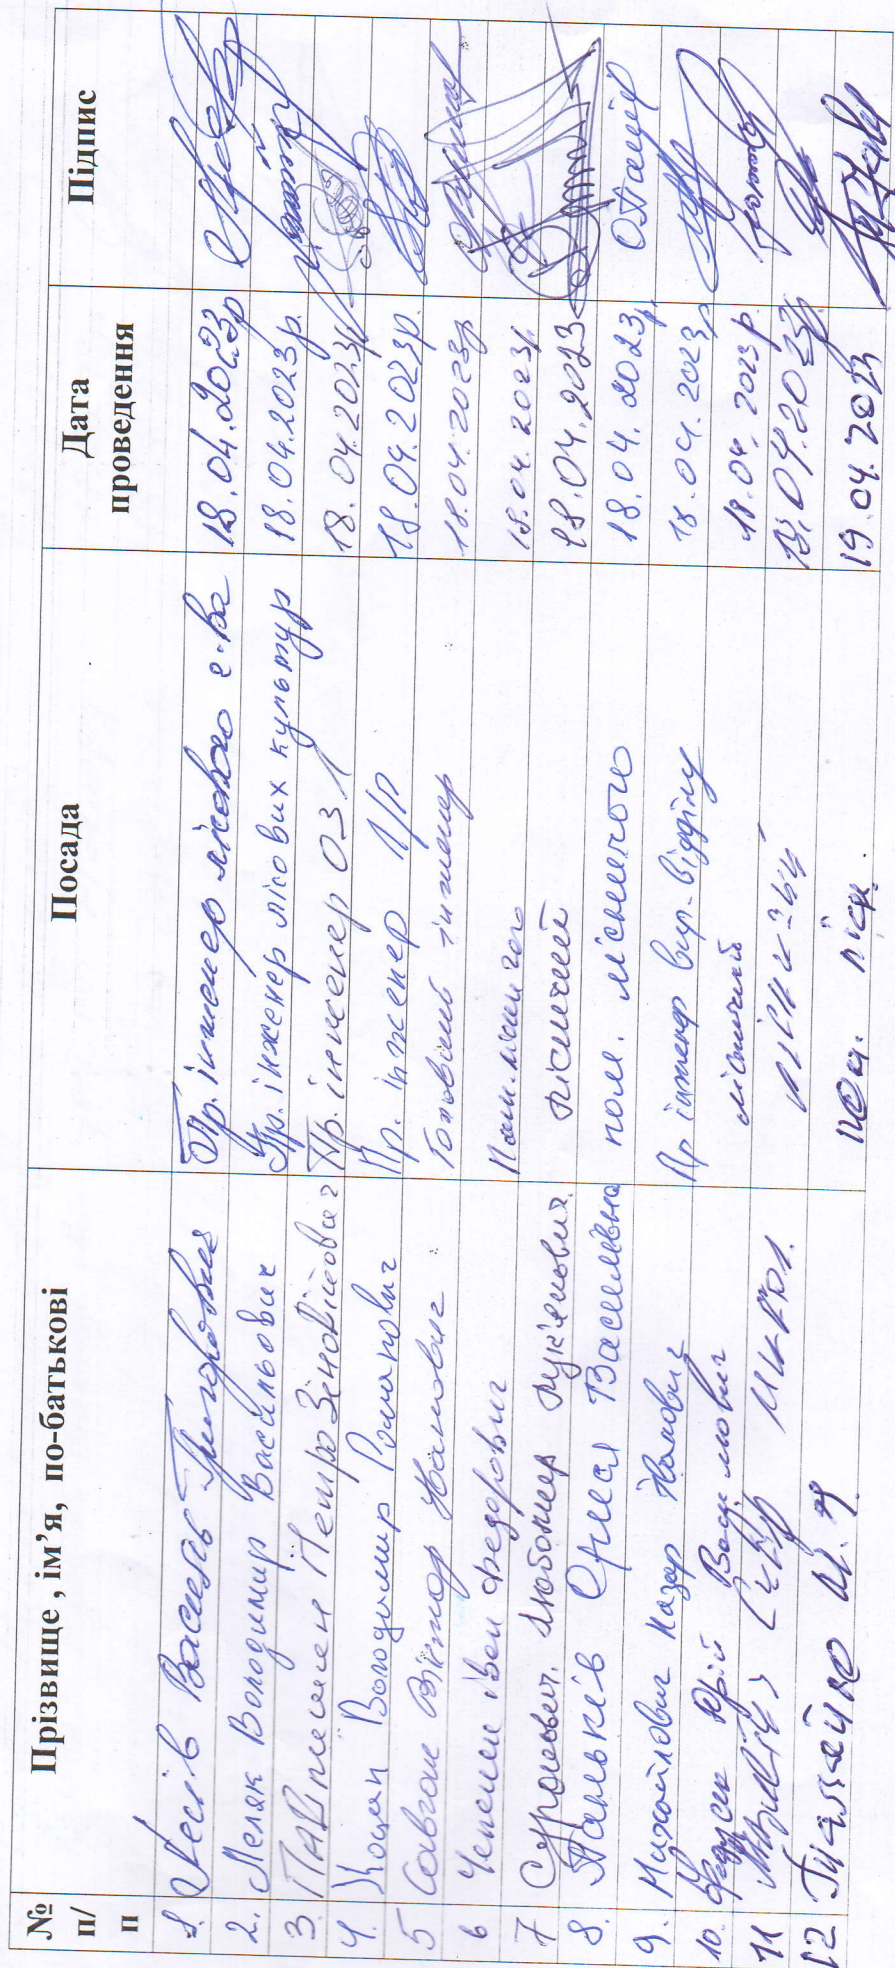 № п/п Прізвище , ім’я, по-батькові Посада Дата проведення Підпис
1. Лесів Василь Григорович Пр. інженер лісового г-ва 18.04.2023р
2. Меляк Володимир Васильович Пр. інженер лісових культур 18.04.2023р.
3. Петро Зіновійович Пр. інженер ОЗЛ 18.04.2023р
4. Коцан Володимир Романович Пр. інженер Л/Р 18.04.2023р.
5 Савган Віктор Іванович Головний інженер 18.04.2023р
6 Іван Федорович Пом. лісничого 18.04.2023р.
7 Любомир Лук'янович Лісничий 18.04.2023
8. Паньків Орися Василівна пом. лісничого 18.04.2023р. О.Паньків
9. Михайлович Назар Іванович Пр інженер вир. відділу 18.04.2023р
10. Юрій Васильович лісничий 18.04.2023р.
11 лісничий 19.04.2023р
12 М. Я. пом. лісн. 19.04.2023